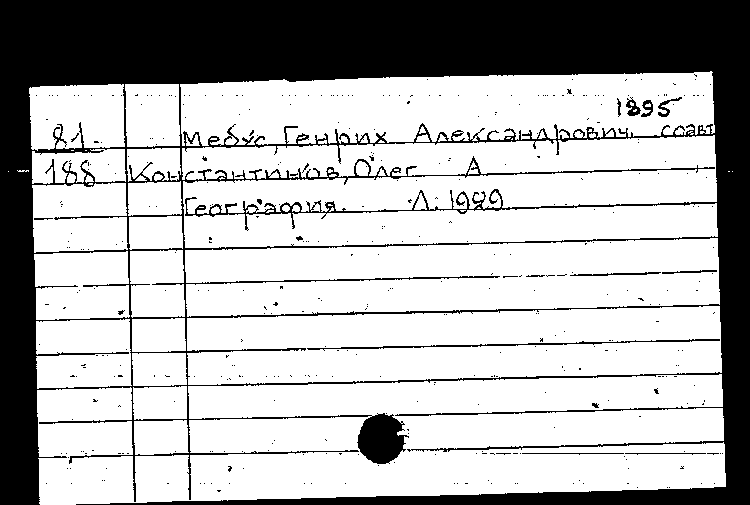 1895
81- Мебус, Генрих Александрович. соавт
188 Константинов, Олег А
География. Л. 1929